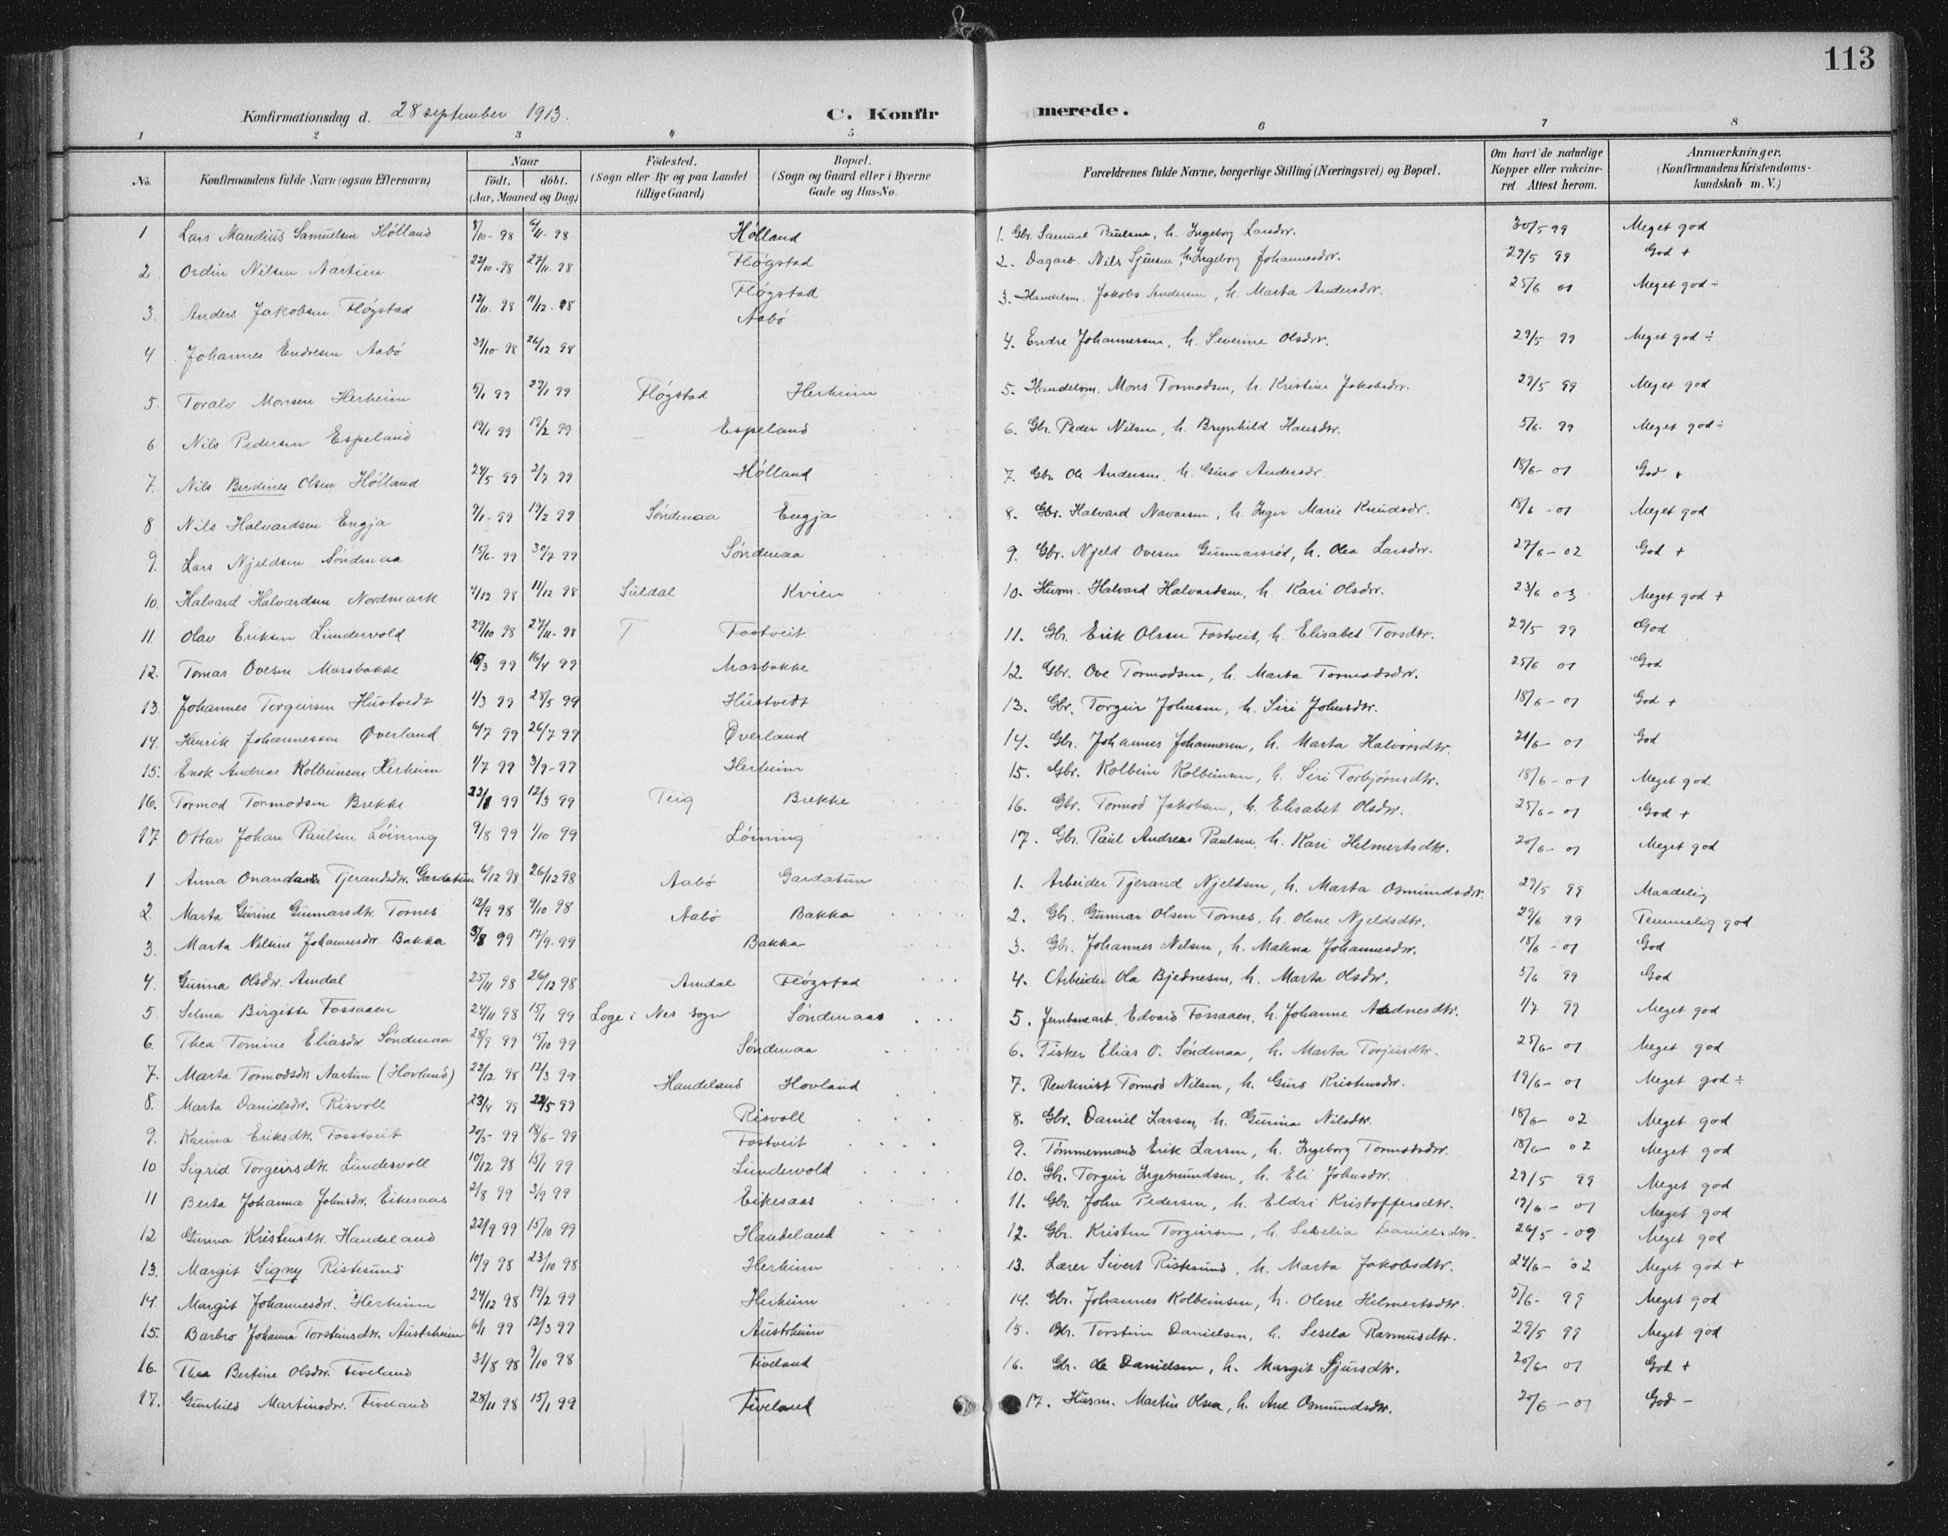 113
Konfirmationsdag d. 28 september 1913.
C. Konfirmerede.
1 2 3 4 5 6 7 8
No. Konfirmandens fulde Navn (ogsaa Efternavn) Naar født. døbt. (Aar, Maaned og Dag) Fødested. (Sogn eller By og paa Landet tillige Gaard) Bopæl. (Sogn og Gaard eller i Byerne Gade og Hus-No. Forældrenes fulde Navne, borgerlige Stilling (Næringsvei) og Bopæl. Om havt de naturlige Kopper eller vakcineret Attest herom. Anmærkninger. (Konfirmandens Kristendomskundskab m. V.)
1 Lars Mandius Samuelsen Hølland 8/10-98 6/11-98 Hølland 1. Gbr. Samuel Paulsen, h. Ingeborg Larsdtr. 30/5 99 Meget god
2 Ordin Nilsen Aartun 22/10-98 27/11-98 Fløgstad 2. Dagarb. Nils Sjursen, h. Ingeborg Johannesdtr. 29/5 99 God +
3. Anders Jakobsen Fløgstad 12/11-98 11/12-98 Fløgstad 3. Handelsm. Jakobs Andersen, h. Marta Andersdtr. 25/6 01 Meget god ÷
4 Johannes Endresen Aabø 31/10-98 26/12 98 Aabø 4. Endre Johannessen, h. Severine Olsdtr. 29/5 99 Meget god ÷
5. Toralv Monsen Herheim 5/1 99 29/1 99 Fløgstad Herheim 5. Handelsm. Mons Tormodsen, h. Kristine Jakobsdtr. 29/5 99 Meget god
6 Nils Pedersen Espeland 19/1 99 19/2 99 Espeland 6. Gbr. Peder Nilsen, h. Brynhild Hansdtr. 5/6. 99 Meget god ÷
7. Nils Berdines Olsen Hølland 24/5 99 2/7 99 Hølland 7. Gbr. Ole Andersen, h. Guro Andersdr. 18/6-01 God +
8 Nils Halvardsen Engja 9/1-99 19/2 99 Søndenaa Engja 8. Gbr. Halvard Navarsen, h. Inger Marie Knudsdr. 18/6-01 Meget god
9. Lars Njeldsen Søndenaa 15/6-99 30/7 99 Søndenaa 9. Gbr. Njeld Ovesen Gunnarsrød, h. Olea Larsdtr. 27/6-02 God +
10. Halvard Halvardsen Nordmark 4/12 98 11/12 98 Suldal Kvien 10. Husm. Halvard Halvardsen, h. Kari Olsdtr. 23/6 03 Meget god +
11 Olav Eriksen Lundervold 29/10 98 27/11-98 T Fostveit 11. Gbr. Erik Olsen Fostveit, h. Elisabet Torsdtr. 29/5 99 God
12. Tomas Ovesen Marsbakke 15/3 99 16/4 99 Masbakke 12. Gbr. Ove Tormodsen, h. Marta Tormodsdtr. 25/6 01 God
13. Johannes Torgeirsen Hustvedt 1/3 99 28/5 99 Hustvedt 13. Gbr. Torgeir Johnsen, h. Siri Johnsdtr. 18/6-01 God +
14. Henrik Johannessen Øverland 6/7 99 26/7 99 Øverland 14. Gbr. Johannes Johannesen, h. Marta Halvorsdtr. 21/6-01 God
15. Enok Andreas Kolbeinsen Herheim 1/7 99 3/9-99 Herheim 15. Gbr. Kolbein Kolbeinsen, h. Siri Torbjørnsdtr. 18/6-01 Meget god.
16. Tormod Tormodsen Brekke 99 12/3 99 Teig Brekke 16. Gbr. Tormod Jakobsen, h. Elisabet Olsdtr. 25/6-01 God +
17 Ottar Johan Paulsen Løining 9/8 99 1/10 99 Løining 17. Gbr. Paul Andreas Paulsen, h. Kari Helmertsdtr. 20/6-01 Meget god
1 Anna Tjerandsdtr. Gardatun 6/12 98 26/12 98 Aabø Gardatun 1. Arbeider Tjerand Njeldsen, h. Marta Osmundsdtr. 29/5 99 Maadelig
2. Marta Gurine Gunnarsdtr. Tornes 12/9 98 9/10 98 Aabø Bakka 2. Gbr. Gunnar Olsen Tornes, h. Olene Njeldsdtr. 29/6 99 Temmelig god
3. Marta Nilsine Johannesdtr. Bakka 5/8 99 17/9-99 Bakka 3. Gbr. Johannes Nilsen, h. Malena Johannesdtr. 18/6-01 God
4. Gurina Olsdtr. Amdal 25/11 98 26/12 98 Amdal Fløgstad 4. Arbeider Ola Bjednesen, h. Marta Olsdtr. 5/6 99 God
5. Selma Birgitte Fossaaen 24/11 98 15/1 99 Loge i Nes sogn Søndenaas 5. Jernbanearb. Edvard Fossaaen, h. Johanne Aadnesdtr. 1/7 99 Meget god
6. Thea Tomine Eliasdtr Søndenaa 28/9 99 15/10 99 Søndenaa 6. Fisker Elias O. Søndenaa, h. Marta Torjusdtr. 25/6-01 Meget god
7. Marta Tormodsdtr Aartun (Hovland) 22/12 98 12/3 99 Handeland Hovland 7. Rentenist Tormod Nilsen, h. Guro Kristensdtr. 19/6-01 Meget god ÷
8. Marta Danielsdtr. Risvoll 23/4 99 22/5 99 Risvoll 8. Gbr. Daniel Larsen, h. Gurina Nilsdtr. 18/6- 02 Meget god
9. Karina Eriksdtr. Fosstveit 20/5-99 18/6-99 Fostveit 9. Tømmermand Erik Larsen, h. Ingeborg Tormodsdtr. 18/6- 02 Meget god
10 Sigrid Torgeirsdtr. Lundervoll 10/12 98 15/1 99 Lundervold 10. Gbr. Torgeir Ingemundsen, h. Eli Johnsdtr. 29/5 99 Meget god
11 Berta Johanna Johnsdtr. Eikesaas 2/8 99 3/9 99 Eikesaas 11. Gbr. John Pedersen, h. Eldri Kristoffersdtr. 19/6-01 Meget god
12 Gurina Kristensdtr. Handeland 22/9 99 15/10 99 Handeland 12. Gbr. Kristen Torgeirsen, h. Seselia Danielsdtr. 26/5-09 Meget god
13. Margit Signy Ristesund 10/9 98 23/10 98 Herheim 13. Lærer Sivert Ristesund, h. Marta Jakobsdtr. 24/6- 02 Meget god +
14. Margit Johannesdtr. Herheim 24/12 98 19/2 99 Herheim 14. Gbr. Johannes Kolbeinsen, h. Olene Helmertsdtr. 5/6- 99 Meget god
15. Barbro Johanna Torsteinsdtr. Austrheim 6/1 99 12/3 99 Austrheim 15. Gbr. Torstein Danielsen, h. Sesela Rasmusdtr. 29/5 99 Meget god
16. Thea Bertine Olsdtr. Fiveland 31/8 98 9/10 98 Fiveland 16. Gbr. Ole Danielsen, h. Margit Sjursdtr. 20/6- 01 God +
17. Gunhild Martinsdtr. Fiveland 28/11 98 15/1 99 Fiveland 17. Husm. Martin Olsen, h. Ane Osmundsdtr. 20/6-01 God -